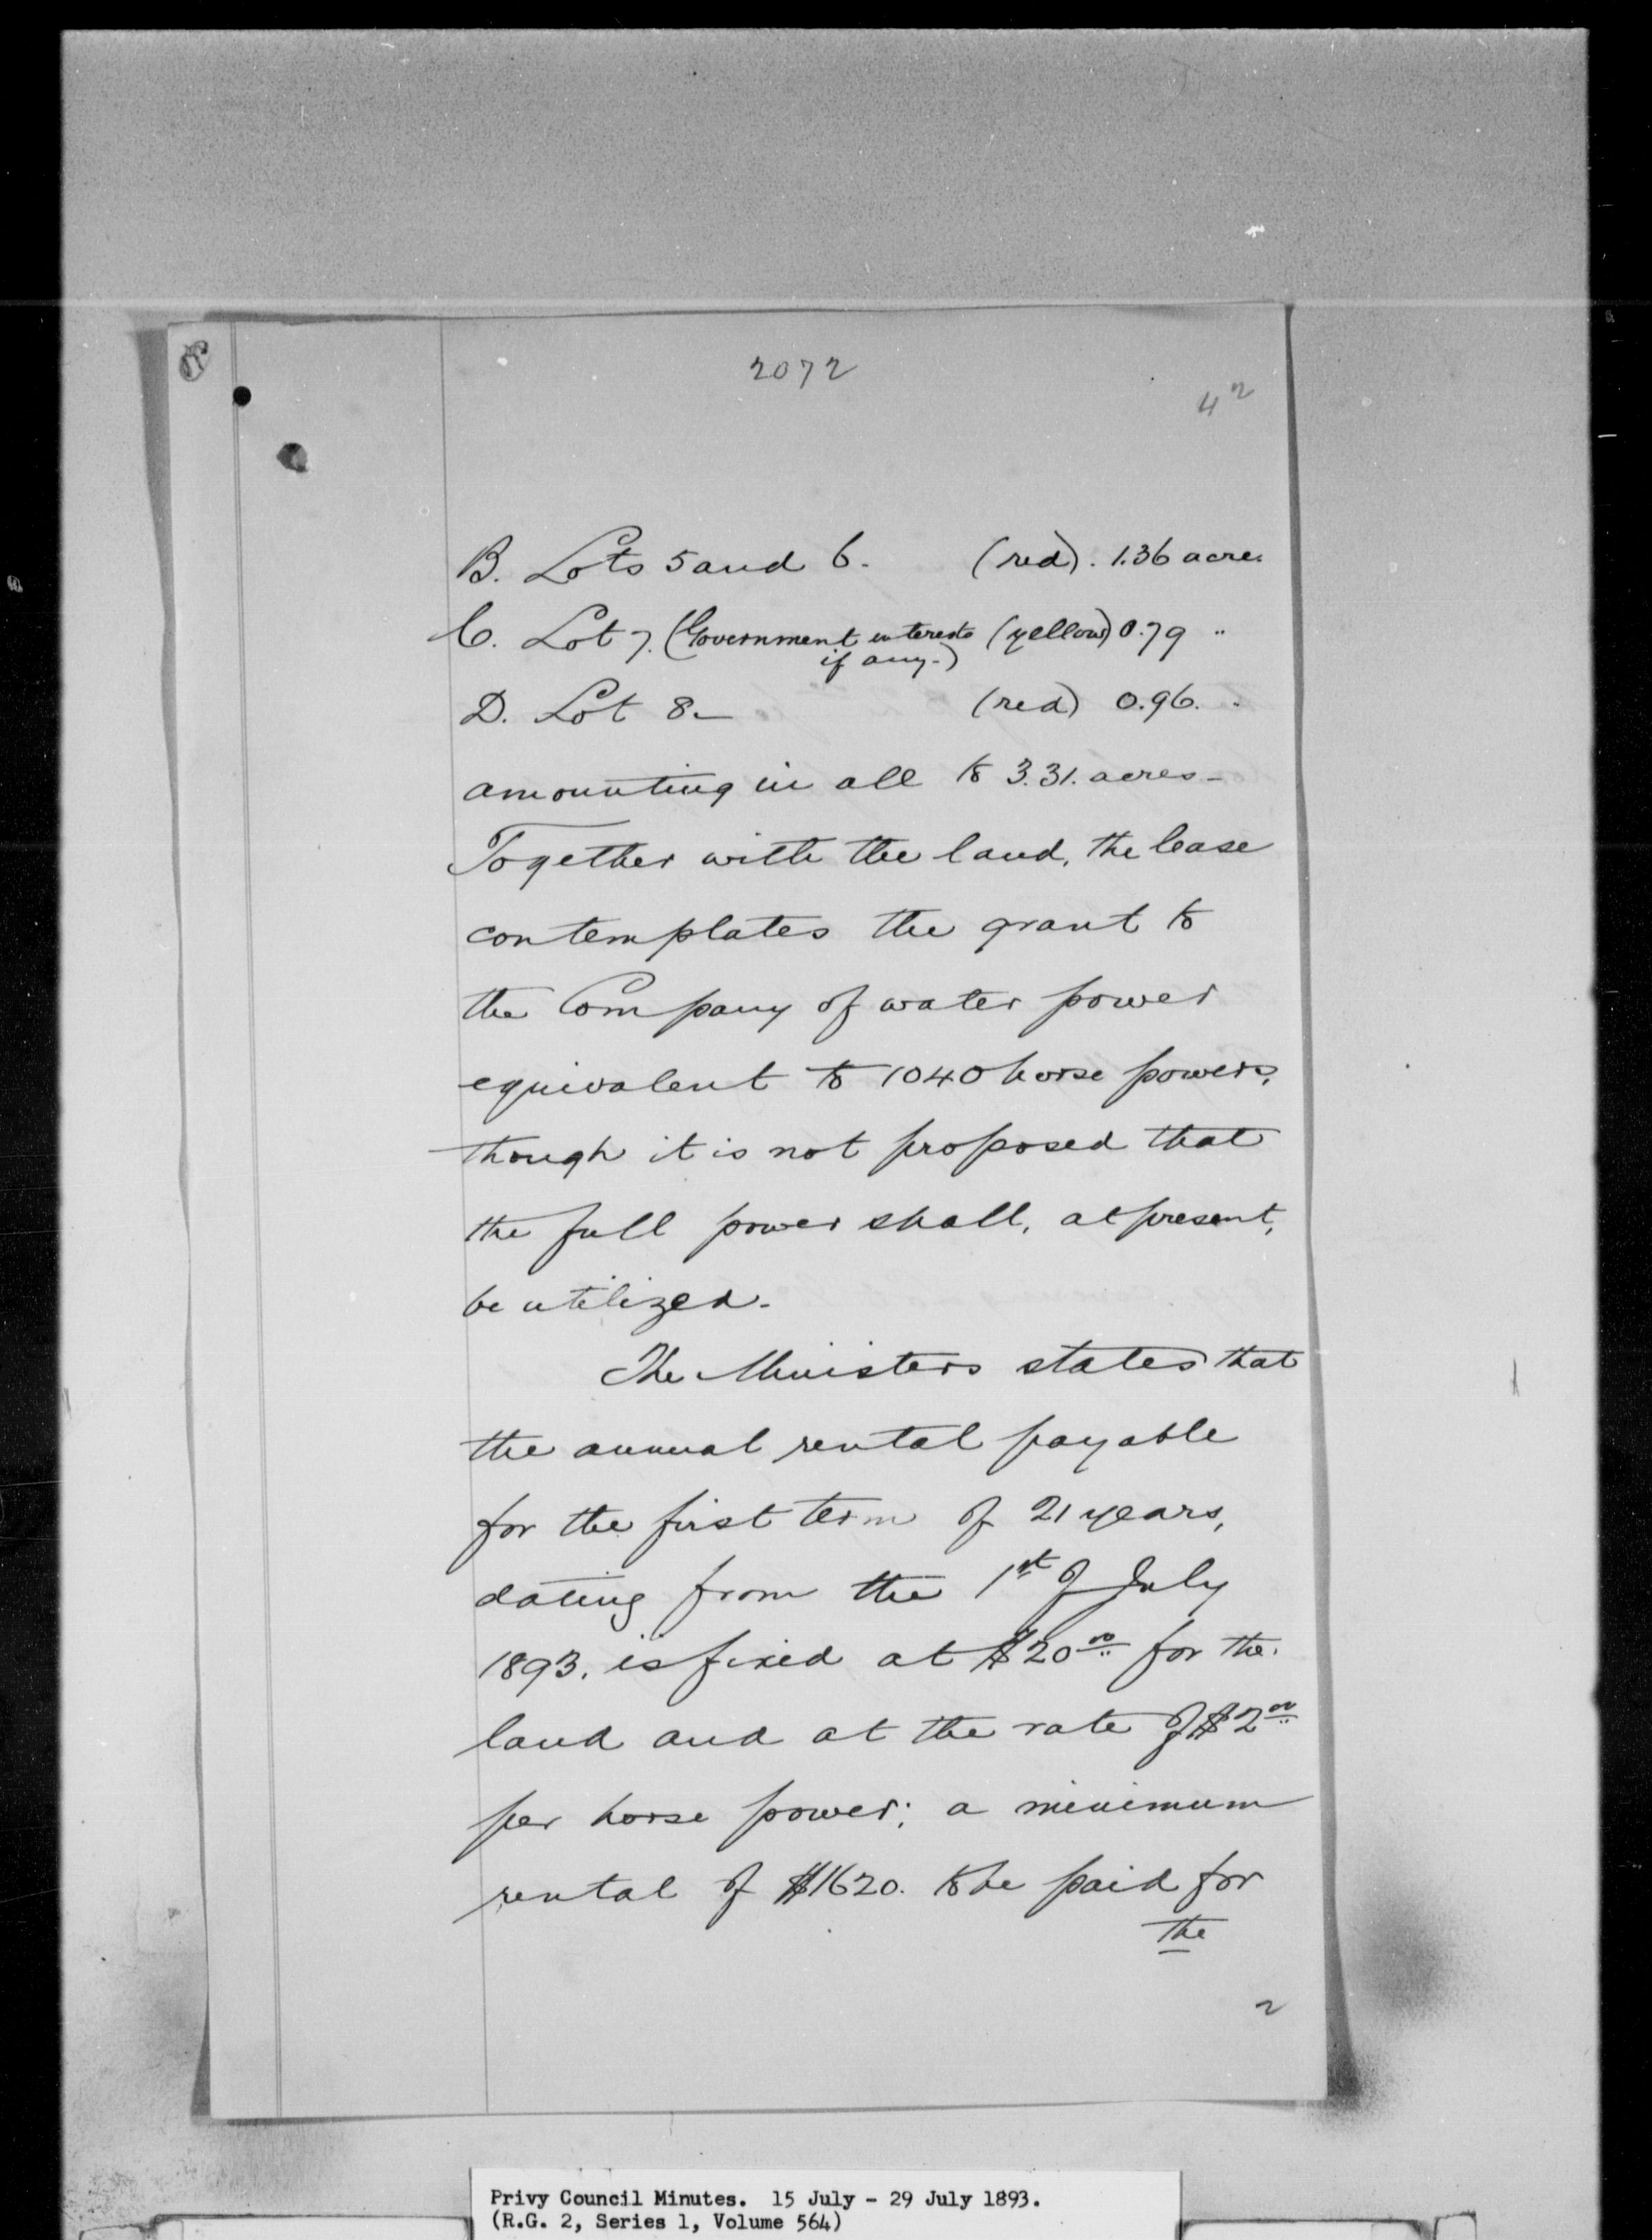 2072
42
B. Lots 5 and 6. (red). 1.36 acre.
C. Lot 7. (Government interests (yellow) 0.79 "
if any.)
D. Lot 8 - (red) 0.96. "
amounting in all to 3.31. acres -
Together with the land, the lease
contemplates the grant to
the Company of water power
equivalent to 1040 horse powers,
though it is not proposed that
the full power shall, at present,
be utilized.
The Ministers states that
the annual rental payable
for the first term of 21 years,
dating from the 1st of July
1893. is fixed at $20.00 for the
land and at the rate of $2.00
per horse power; a minimum
rental of $1620. to be paid for
the
2
Privy Council Minutes. 15 July - 29 July 1893.
(R.G. 2, Series 1, Volume 564)